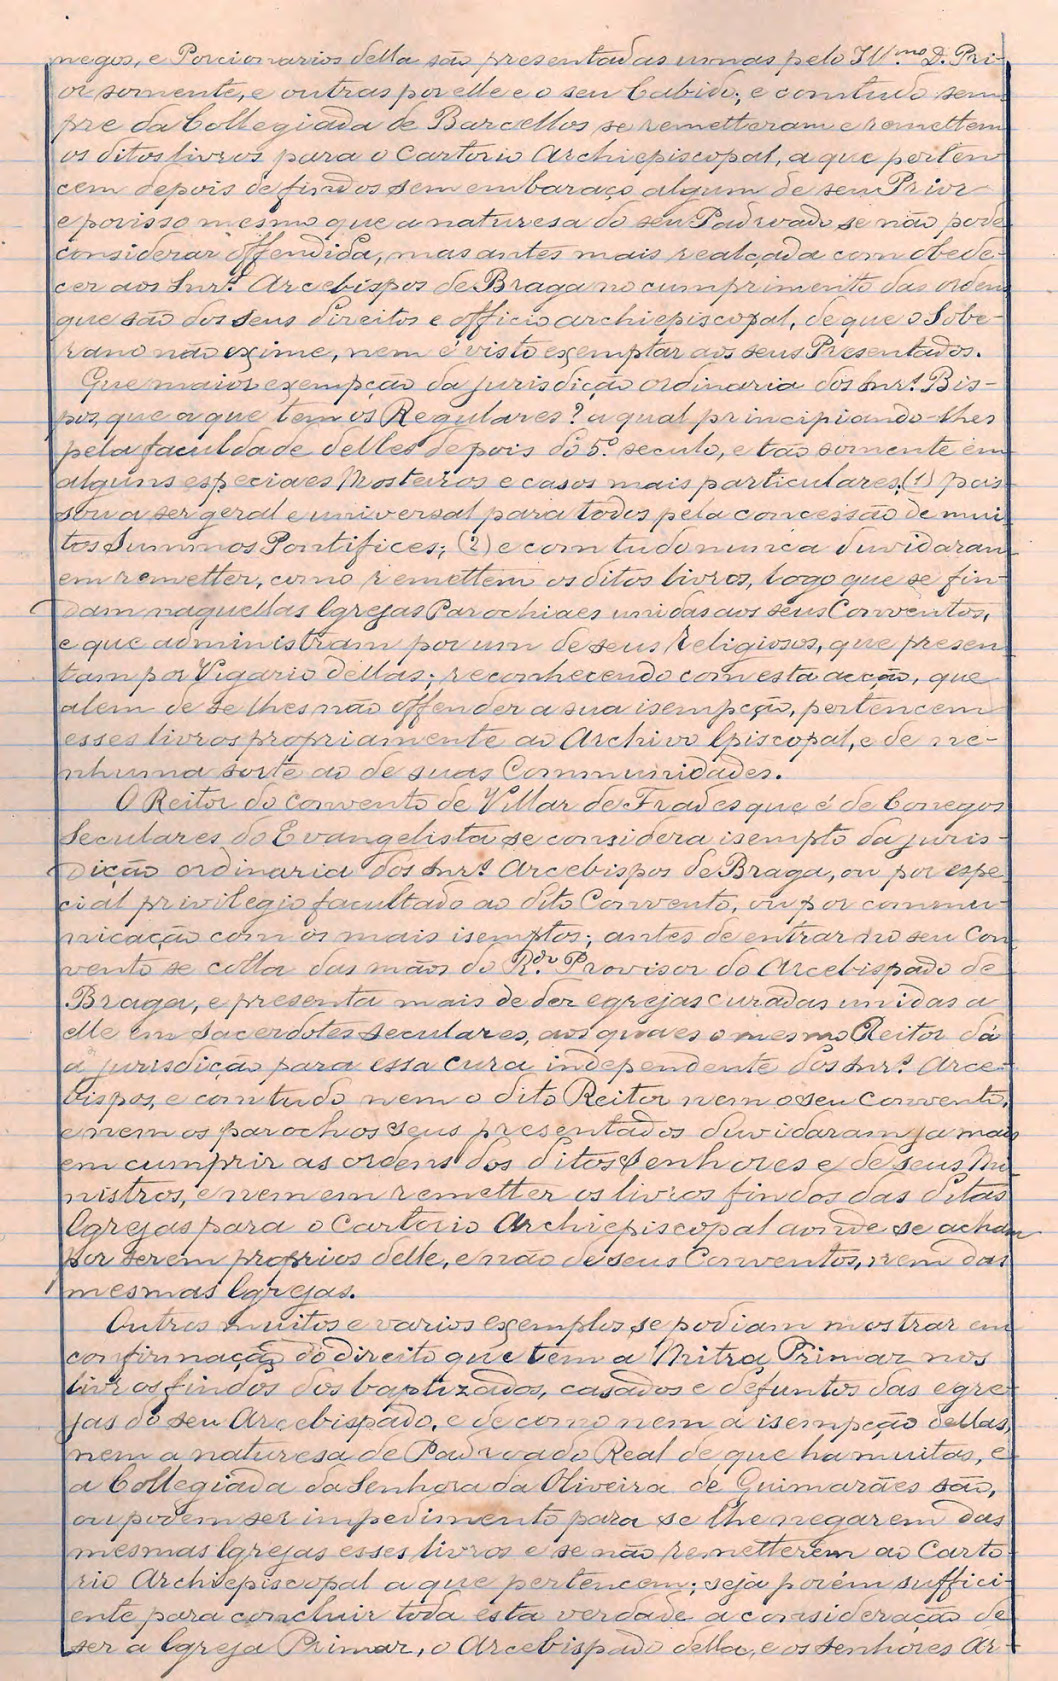 negos, e Porcionarios della são presentadas umas pelo Ill.mo D. Pri-
or somente, e outras por elle e o seu Cabido; e comtudo sem-
pre da Collegiada de Barcellos se remetteram e remettem
os ditos livros para o Cartorio Archiepiscopal, a que perten-
cem depois de findos sem embaraço algum de seu Prior
e por isso mesmo que a naturesa do seu Padroado se não pode
considerar offendida, mas antes mais realçada com obede-
cer aos Snr.s Arcebispos de Braga no cumprimento das ordens
que são dos seus direitos e officio archiepiscopal, de que o Sobe-
rano não exime, nem é visto exemptar aos seus Presentados.
Que maior exempção da jurisdição ordinaria dos Snr.s Bis-
pos, que a que tem os Regulares? a qual principiando-lhes
pela faculdade delles depois do 5.º seculo, e tão somente em
alguns especiaes Mosteiros e casos mais particulares, (1) pas-
sou a ser geral e universal para todos pela concessão de mui-
tos Summos Pontifices; (2) e com tudo nunca duvidaram
em remetter, como remettem os ditos livros, logo que se fin-
dam naquellas Igrejas Parochiaes unidas aos seus Conventos,
e que administram por um de seus religiosos, que presen-
tam por Vigario dellas; reconhecendo com esta acção, que
alem de se lhes não offender a sua isempção, pertencem
esses livros propriamente ao Archivo Episcopal, e de ne-
nhuma sorte ao de suas Communidades.
O Reitor do convento de Villar de Frades que é de Conegos
Seculares do Evangelista se considera isempto da juris-
dição ordinaria dos Snr.s Arcebispos de Braga, ou por espe-
cial privilegio facultado ao dito Convento, ou por commu-
nicação com os mais isemptos; antes de entrar no seu Con-
vento se colla das mãos do R.do Provisor do Arcebispado de
Braga, e presenta mais de dez egrejas curadas unidas a
elle em sacerdotes seculares, aos quaes o mesmo Reitor dá
a jurisdição para essa cura independente dos Snr.s Arce-
bispos, e comtudo nem o dito Reitor nem o seu convento,
e nem os parochos seus presentados duvidaram jamais
em cumprir as ordens dos ditos Senhores e de seus Mi-
nistros, e nem em remetter os livros findos das ditas
Igrejas para o Cartorio Archiepiscopal aonde se acham
por serem proprios delle, e não de seus Conventos, nem das
mesmas Igrejas.
Outros muitos e varios exemplos se podiam mostrar em
confirmação do direito que tem a Mitra Primaz nos
livros findos dos baptizados, casados e defuntos das egre-
jas do seu Arcebispado, e de como nem a isempção dellas,
nem a naturesa de Padroado Real de que ha muitas, e
a Collegiada da Senhora da Oliveira de Guimarães são,
ou podem ser impedimento para se lhe negarem das
mesmas Igrejas esses livros e se não remetterem ao Carto-
rio Archiepiscopal a que pertencem; seja porém suffici-
ente para concluir toda esta verdade a consideração de
ser a Igreja Primaz, o Arcebispado della, e os senhores Ar-